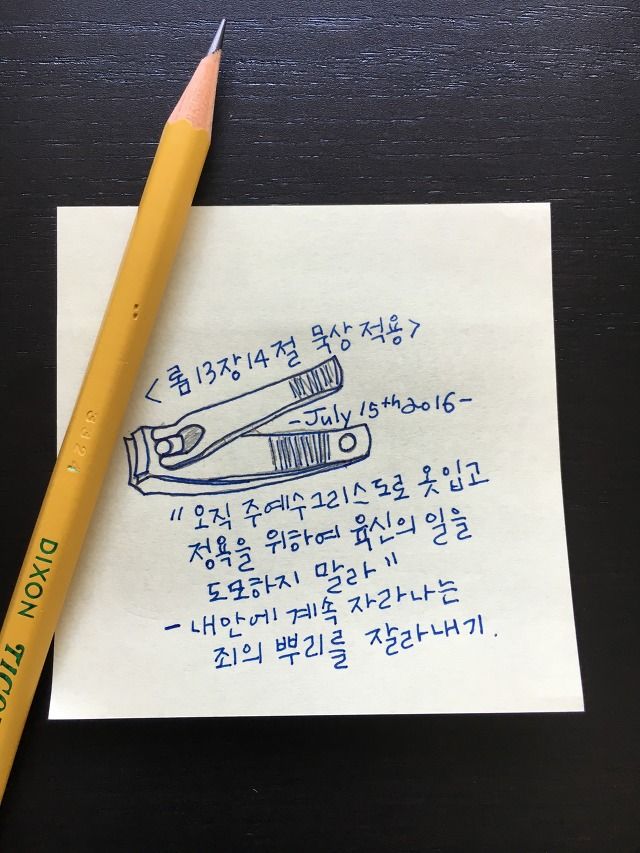 <롬13장14절 묵상 적용>
-July 15th 2016-
"오직 주예수그리스도로 옷입고
정욕을 위하여 육신의 일을
도모하지 말라"
- 내안에 계속 자라나는
죄의 뿌리를 잘라내기.
3324
DIXON TICO